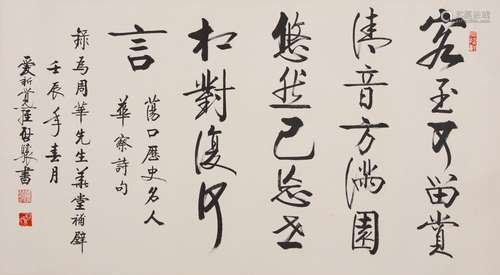 客至可留賞
清音方滿園
悠然已忘世
相對復何
言
蕩口歷史名人
華察詩句
錄為周華先生華堂補壁
壬辰年春月
愛新覺羅啟驤書